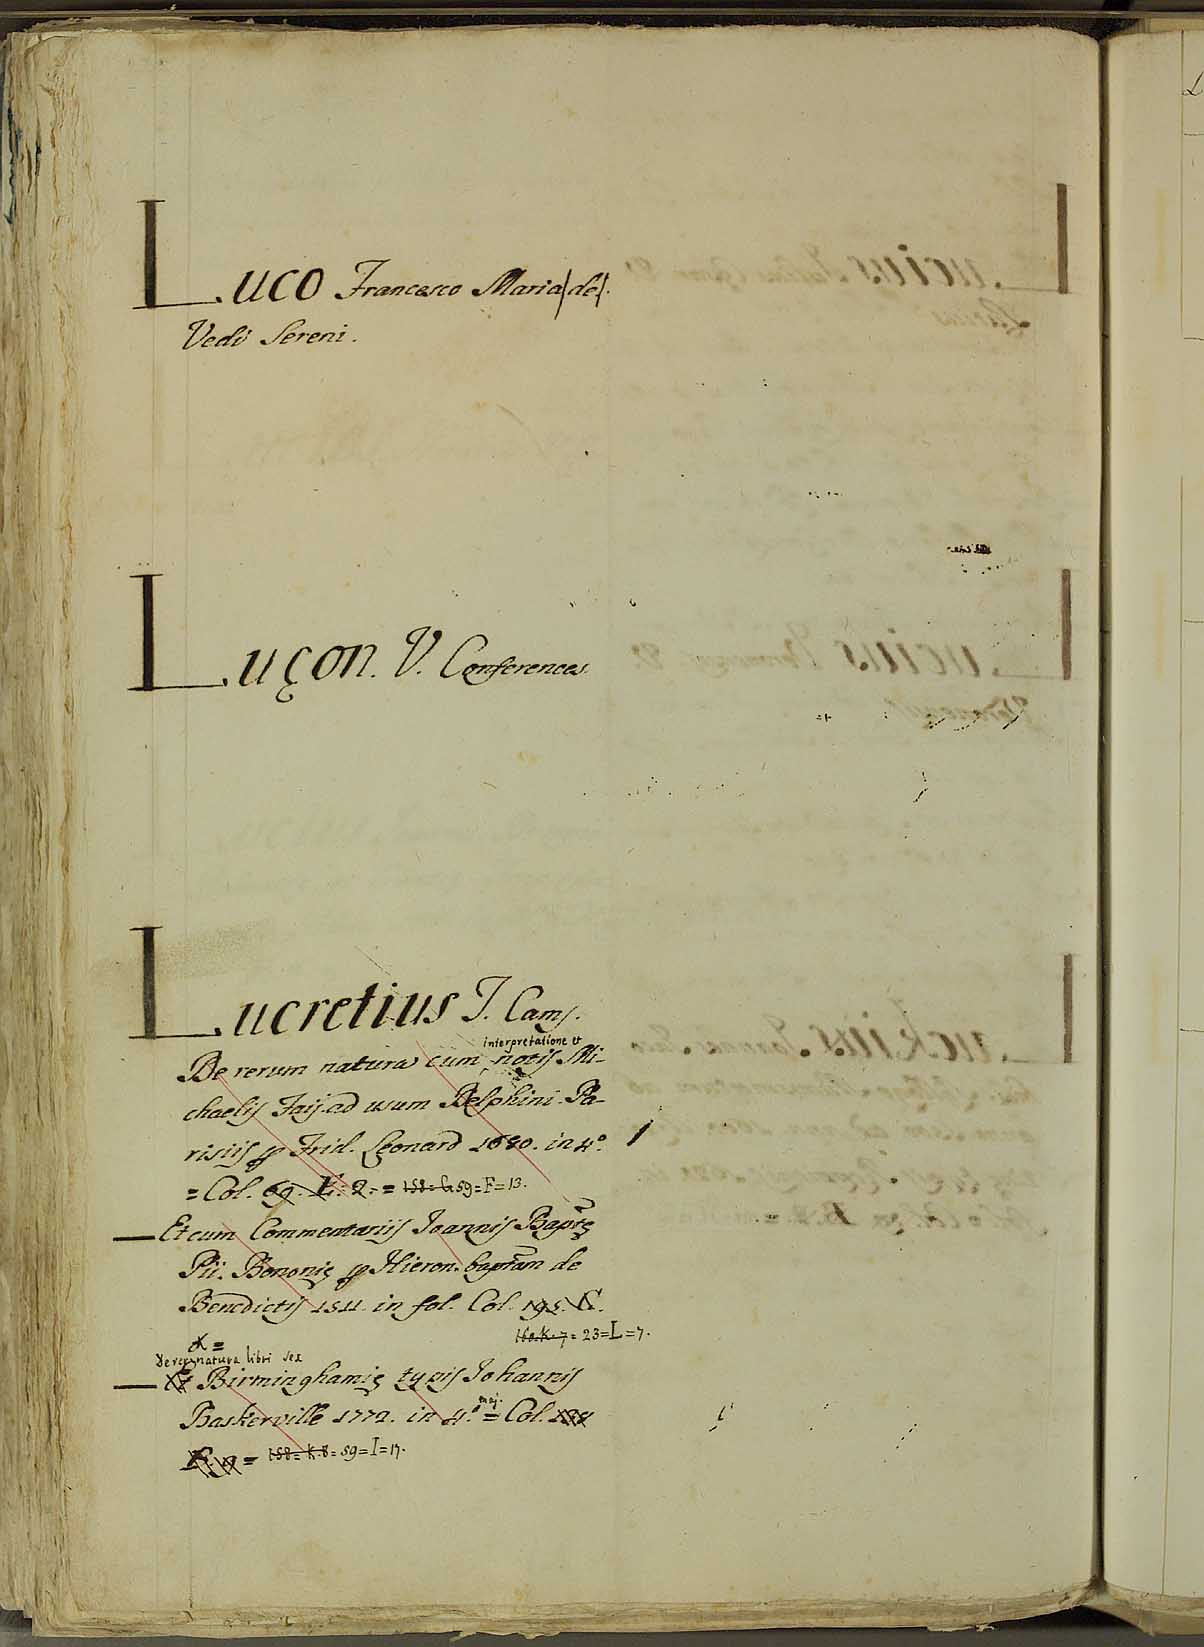 Luco Francesco Maria (de).
Vedi Sereni.
Luçon. V. Conferences.
Lucretius T. Carus.
interpretatione et
De rerum natura cum notis Mi-
chaelis Faij ad usum Delphini. Pa-
risiis ꝑ Frid. Leonard 1680. in 4°.
= Col. 69. E. 2. = 158= G. 59=F=13.
Et cum Commentariis Joannis Baptę
Pii. Bononię ꝑ Hieron. baptam de
Benedictis 1511. in fol. Col. 195. K.
160. K. 7= 23=L=7.
de rer. natura libri sex
Et Birminghamię typis Johannis
Baskerville 1772. in 4.° maj. = Col. 138
= 158= K. 8= 59=I=17.